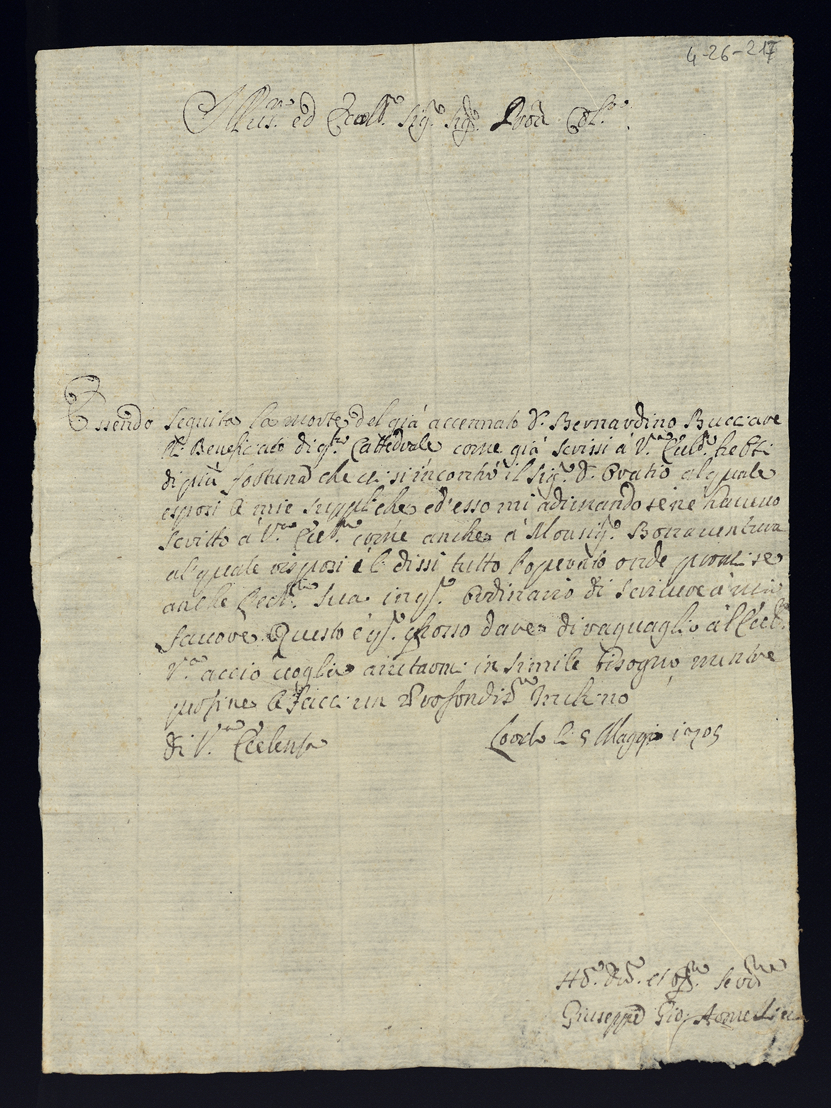 4-26-217
Illus.mo ed Eccell.mo Sig.r Sig.r Pron Col.mo
Essendo seguita la morte del già accennato D. Bernardino Buccare
Beneficiato di q.sta Cattedrale come già scrissi à V.ra Ecc.a hebbi
di più fortuna che si incontrò il Sig.r D. Oratio al quale
esposi le mie suppliche ed esso mi adimandò se ne havevo
scritto à V.ra Ecc.a come anche à Monsig.r Bonaventura
al quale risposi e le dissi tutto l'operato onde promise
anche Sua in q.sto Ordinario di scrivere à mio
favore Questo è q.to posso dare di raguaglio all'Ecc.a
V.ra acciò voglia aiutarmi in simile bisogno mentre
per fine le faccio un Profondis.mo Inchino
di V.ra Eccelenza
Li 5 Maggio 1705
H.mo D.mo et Servi.re
Giuseppe Gio.